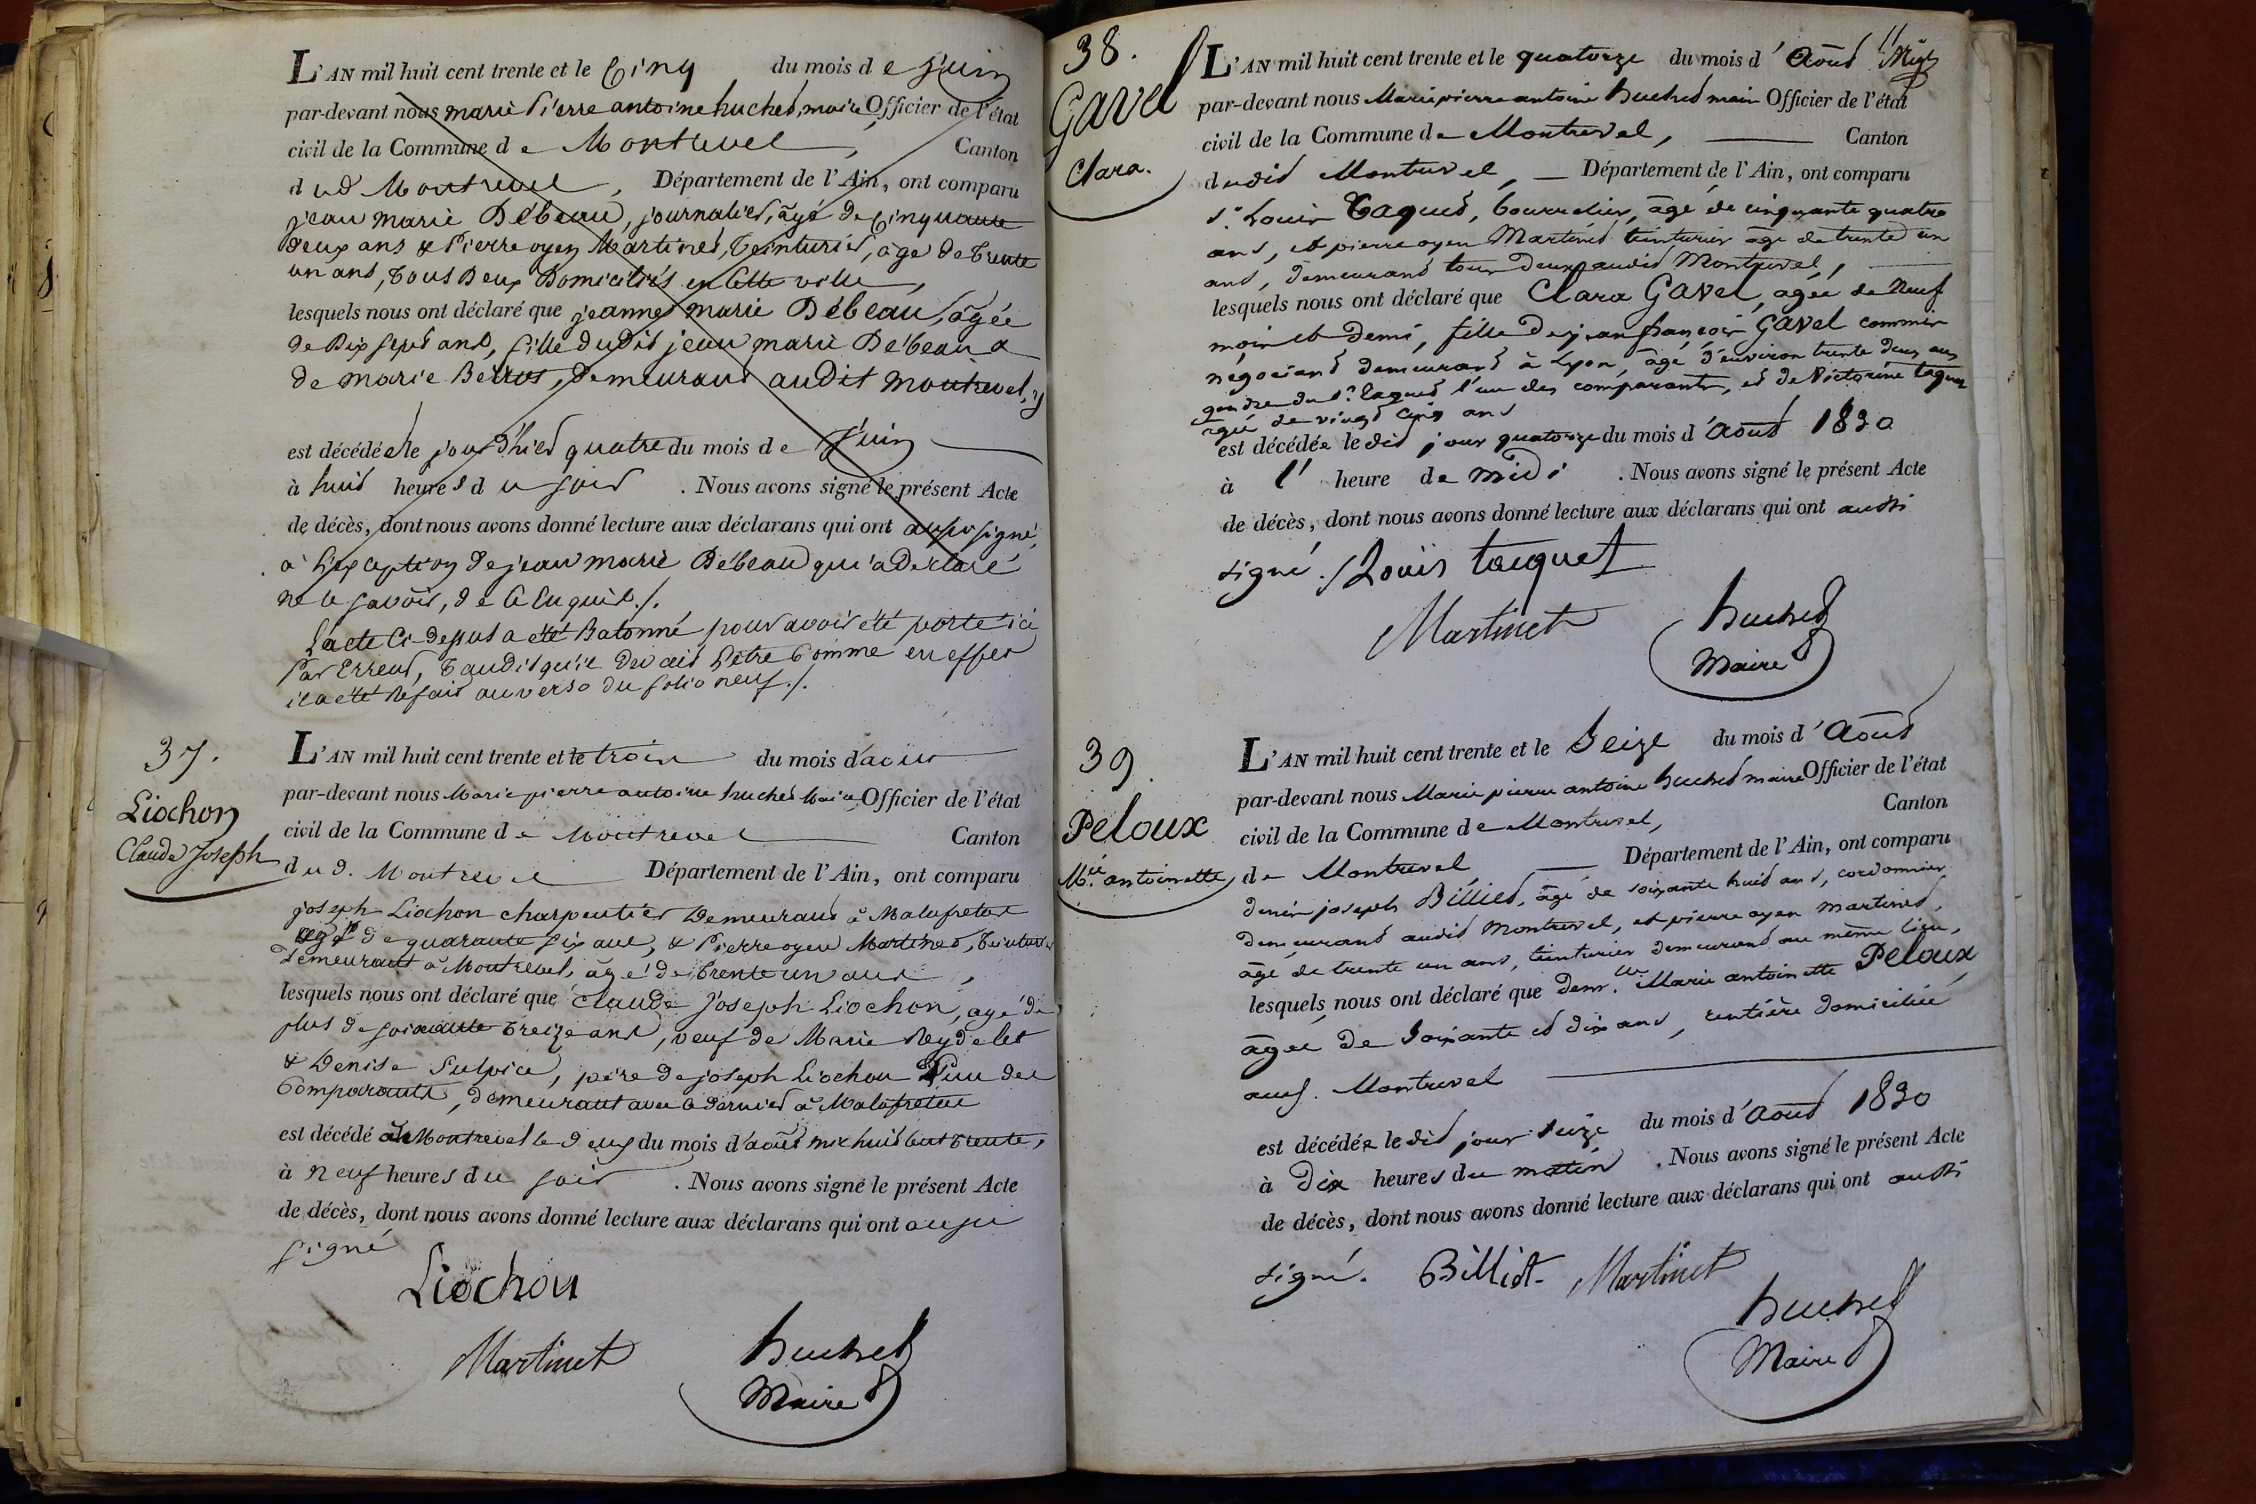 L'AN mil huit cent trente et le Cinq du mois de juin
par-devant nous marie Pierre antoine huchet, maire Officier de l'état
civil de la Commune de Montrevel, Canton
dud Montrevel, Département de l'Ain, ont comparu
jean marie Débeau, journalier, âgé de Cinquante
deux ans & Pierre oyen Martinet, Teinturier, age de trente
un ans, tous Deux Domiciliés en Cette ville,
lesquels nous ont déclaré que jeanne marie Débeau, âgée
de Dix sept ans, fille dudit jean marie Débeau &
de marie , demeurant audit montrevel,
est décédée le jour d'hier quatre du mois de juin
à huit heures du soir . Nous avons signé le présent Acte
de décès, dont nous avons donné lecture aux déclarans qui ont aussi signé,
à l'exception de jean marie Débeau qui a déclaré
ne le savoir, de Ce Enquis./.
L'acte Ci-dessus a été Batonné pour avoir été porté ici
Par Erreur, tandis qu'il devait l'être Comme en effet
il a été Refait au verso du folio neuf./.
37.
Liochon
Claude Joseph
L'AN mil huit cent trente et le trois du mois d'aout
par-devant nous Marie pierre antoine huchet Maire, Officier de l'état
civil de la Commune de Montrevel Canton
dud. Montrevel Département de l'Ain, ont comparu
joseph Liochon charpentier Demeurant à Malafretaz
agé de quarante six ans, & Pierre oyen Martinet, Teinturier
Demeurant à Montrevel, âgé de trente un ans,
lesquels nous ont déclaré que Claude Joseph Liochon, agé de
plus de soixante treize ans, veuf de Marie Reydelet
& Denise Sulpice, père de joseph Liochon l'un des
Comparants, demeurant avec ce dernier à Malafretaz
est décédé à Montrevel le deux du mois d'août mil huit cent trente,
à neuf heures du soir . Nous avons signé le présent Acte
de décès, dont nous avons donné lecture aux déclarans qui ont aussi
signé
Liochon
Martinet huchet
Maire
11
38.
Gavel
Clara.
L'AN mil huit cent trente et le quatorze du mois d'Août
par-devant nous Marie pierre antoine huchet maire Officier de l'état
civil de la Commune de Montrevel, Canton
dudit Montrevel, Département de l'Ain, ont comparu
s.r Louis Taquet, bourrelier, âgé de cinquante quatre
ans, et pierre oyen Martinet teinturier âgé de trente un
ans, demeurant tous deux audit Montrevel,
lesquels nous ont déclaré que Clara Gavel, agée de neuf
mois et demi, fille de jean françois Gavel commis
négociant demeurant à Lyon, âgé d'environ trente deux ans
gendre du s.r Taquet l'un des comparants, et de Victorine Taquet
agée de vingt cinq ans
est décédée le dit jour quatorze du mois d'Août 1830
à l' heure de midi . Nous avons signé le présent Acte
de décès, dont nous avons donné lecture aux déclarans qui ont aussi
signé./ Louis taquet
Martinet huchet
Maire
39.
Peloux
M.ie antoinette
L'AN mil huit cent trente et le Seize du mois d'Août
par-devant nous Marie pierre antoine huchet maire Officier de l'état
civil de la Commune de Montrevel, Canton
de Montrevel Département de l'Ain, ont comparu
denis joseph Billiet, âgé de soixante huit ans, cordonnier
demeurant audit Montrevel, et pierre oyen martinet,
âgé de trente un ans, teinturier demeurant au même lieu,
lesquels nous ont déclaré que dem.lle Marie antoinette Peloux
âgée de soixante et dix ans, rentière domiciliée
aud. Montrevel
est décédée le dit jour seize du mois d'Août 1830
à dix heures du matin . Nous avons signé le présent Acte
de décès, dont nous avons donné lecture aux déclarans qui ont aussi
signé. Billiet Martinet
huchet
Maire